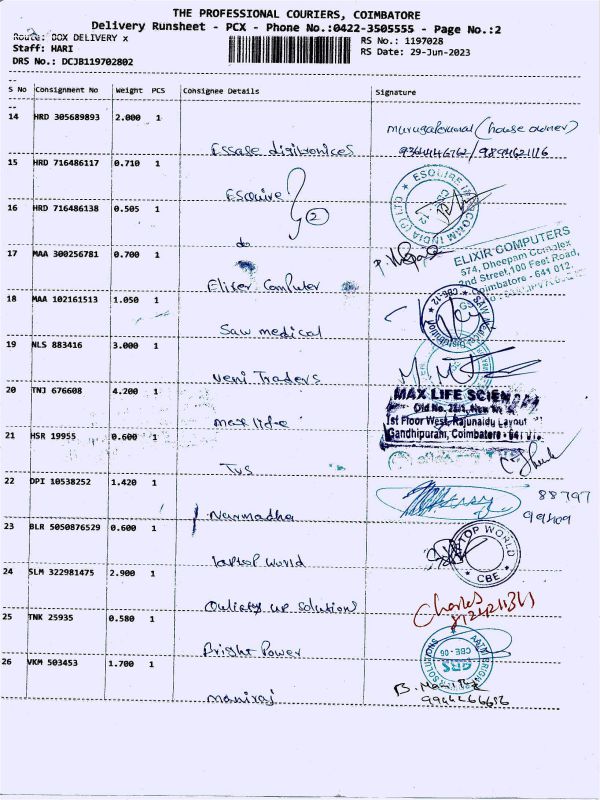 THE PROFESSIONAL COURIERS, COIMBATORE
Delivery Runsheet - PCX - Phone No.:0422-3505555 - Page No.:2
Route: BOX DELIVERY x
RS No.: 1197028
Staff: HARI
RS Date: 29-Jun-2023
DRS No.: DCJB119702802
S No Consignment No Weight PCS Consignee Details Signature
14 HRD 305689893 2.000 1
murugaperumal (house owner)
Essae digitronices
15 HRD 716486117 0.710 1
ESQUIRE
Esquire
2
16 HRD 716486138 0.505 1
do
17 MAA 300256781 0.700 1
ELIXIR COMPUTERS
574, Dheepam Complex
2nd Street,100 Feet Road,
Coimbatore - 641 012.
Elixer Computer
18 MAA 102161513 1.050 1
CBE-12
Saw medical
19 NLS 883416 3.000 1
Veni Traders
20 TNJ 676608 4.200 1
MAX LIFE SCIEN
1st Floor West, Rajunaidu Layout
Gandhipuram, Coimbatore - 641
21 HSR 19955 0.600 1
Tvs
22 DPI 10538252 1.420 1
88797
Narmadha
23 BLR 5050876529 0.600 1
TOP WORLD
CBE
laptop world
24 SLM 322981475 2.900 1
Charles
solutions
25 TNK 25935 0.580 1
SOLUTIONS
GRS
CBE - 06
Bright Power
26 VKM 503453 1.700 1
Maniraj